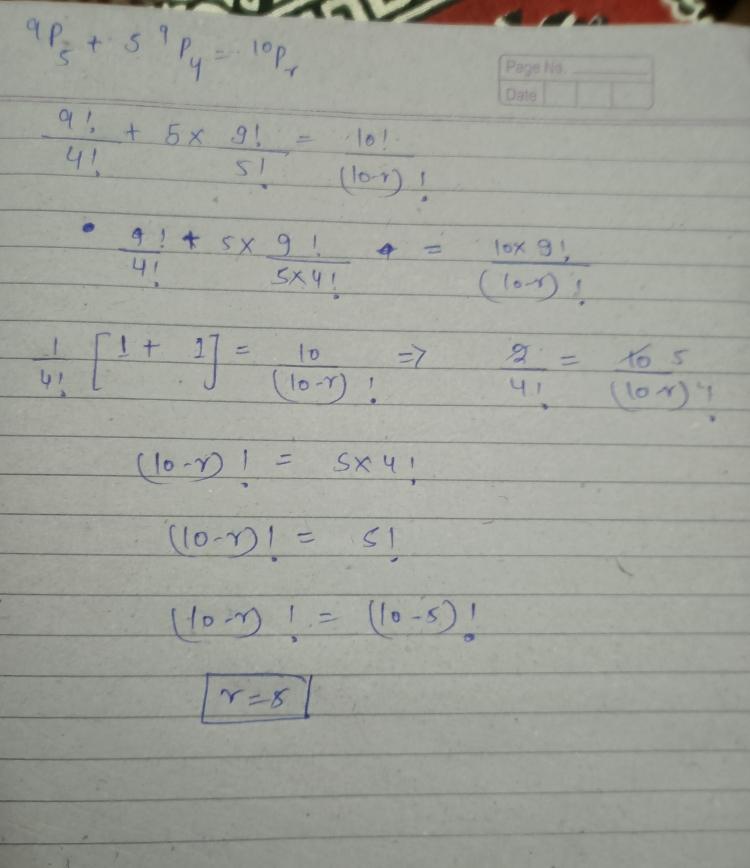 ⁹P₅ + 5 ⁹P₄ = ¹⁰Pᵣ
Page No.
Date
9!/4! + 5 × 9!/5! = 10!/(10-r)!
9!/4! + 5 × 9!/(5×4!) = 10×9!/(10-r)!
1/4! [1 + 1] = 10/(10-r)! => 2/4! = 10 5/(10-r)!
(10-r)! = 5×4!
(10-r)! = 5!
(10-r)! = (10-5)!
r=5